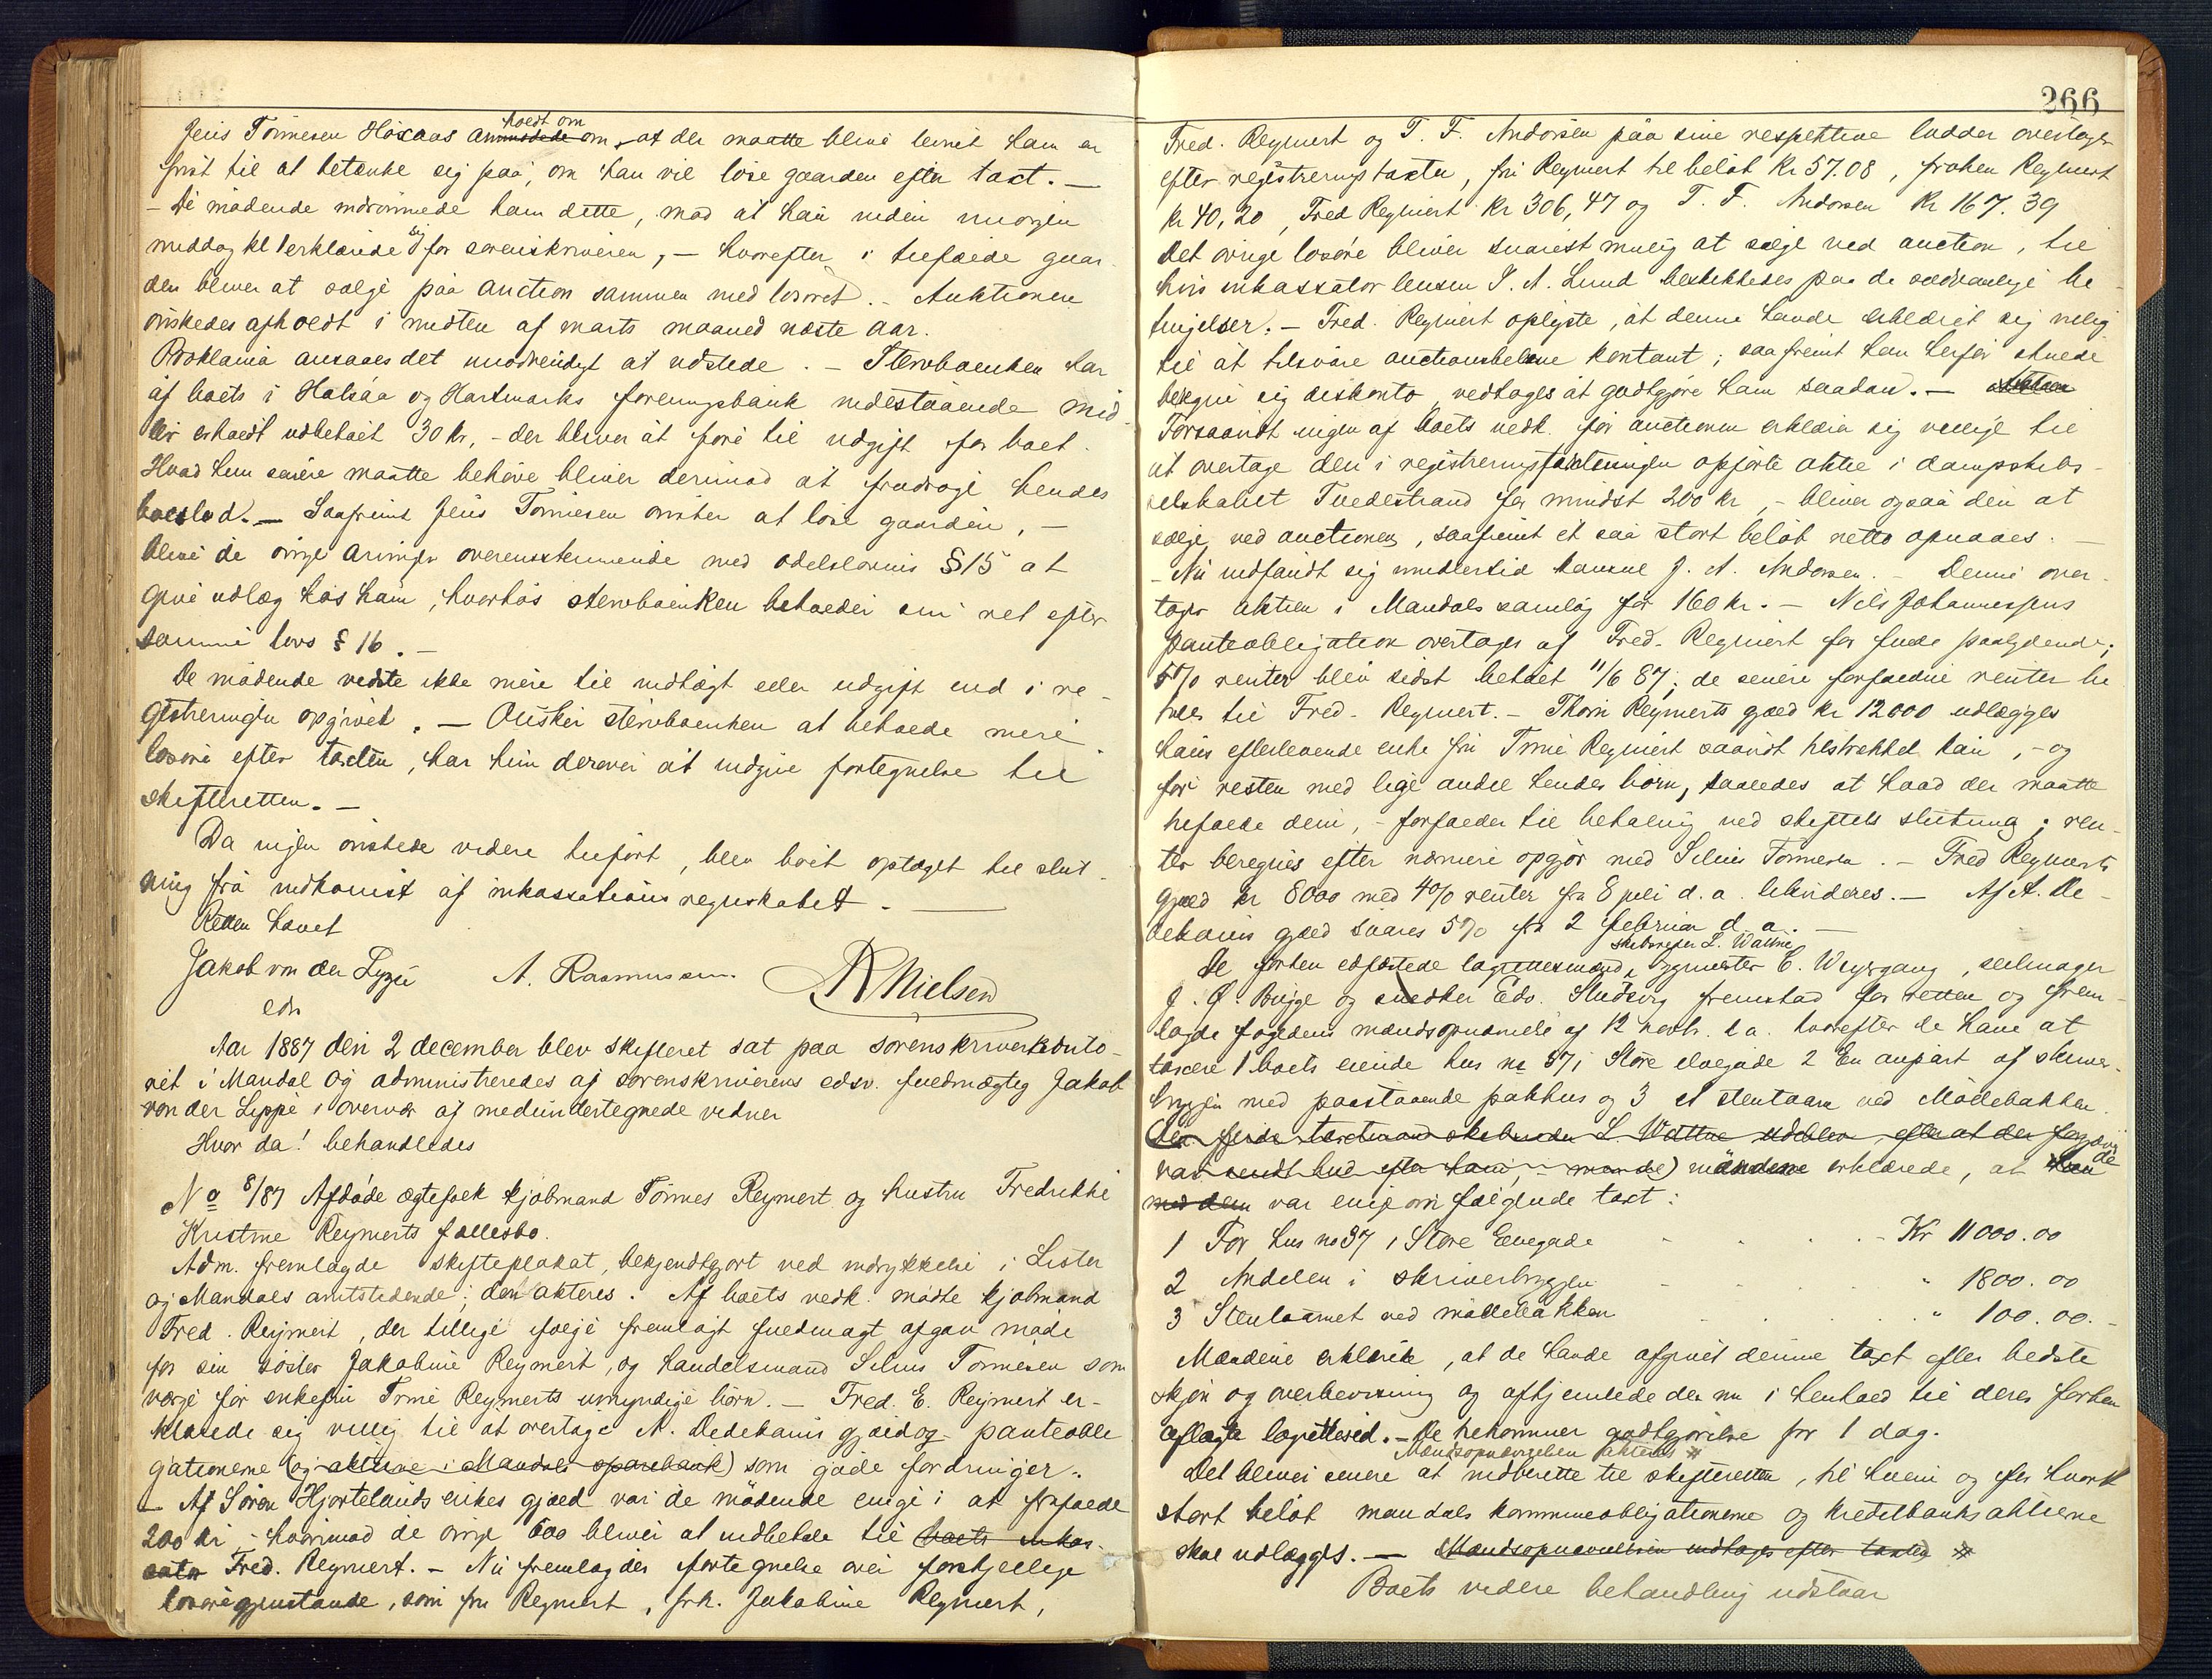 Jens Tönnesen Höiaas anmodede om holdt om, at der maatte blive levnet ham en
frist til at betænke sig paa, om han vil löse gaarden efter taxt. —
— De mödende indrömmede ham dette, mod at han inden imorgen
middag kl 1 erklærede sig for sorenskriveren, — hvorefter i tilfælde gaar-
den bliver at sælge paa auction sammen med lösöret. — Auktionen
önskedes afholdt i midten af marts maaned næste aar.
Proklama ansaaes det unödvendigt at udstede. — Stervboenken har
af boets i Halsaa og Hartmarks foreningsbank indestaaende mid-
ler erholdt udbetalt 30 kr, - der bliver at före til udgift for boet.
Hvad hun senere maatte behöve bliver derimod at fradrage hendes
boeslod. — Saafremt Jens Tönnesen önsker at löse gaarden, —
blive de övrige arvinger overensstemmende med odelslovens § 15 at
give udlæg hos ham, hvorhos stervboenken beholder sin ret efter
samme lovs § 16. —
De mödende vedste ikke mere til indtægt eller udgift end i re-
gistreringen opgivet. — Önsker stervboenken at beholde mere
lösöre efter taxten, har hun derover at indgive fortegnelse til
skifteretten. —
Da ingen önskede videre tilfört, blev boet optaget til slut-
ning fra indkomst af inkassations regnskabet. —
Retten hævet
Jakob von der Lippe A. Rasmussen. R Nielsen
edv
Aar 1887 den 2 december blev skifteret sat paa sorenskriverkonto-
ret i Mandal og administreredes af sorenskriverens edsv. fuldmægtig Jakob
von der Lippe i overvær af medundertegnede vidner
Hvor da! behandledes
No 8/87 Afdöde ægtefolk kjöbmand Tönnes Reymert og hustru Fredrikke
Kristine Reymerts fællesbo.
Adm. fremlagde skifteplakat, bekjendtgjort ved indrykkelse i Lister
og Mandals amtstidende; den akteres. Af boets vedk. mödte kjöbmand
Fred. Reymert, der tillige ifölge fremlagt fuldmagt afgav möde
for sin söster Jakobine Reymert, og handelsmand Selius Tönnesen som
verge for enkefru Trine Reymerts umyndige börn. — Fred. E. Reymert er-
klærede sig villig til at overtage A. Dedekams gjæld og panteobli
gationerne (og aktierne i Mandals sparebank) som gode fordringer.
— Af Sören Hjortelands enkes gjæld var de mödende enige i at frafalde
200 kr, — hvorimod de övrige 600 bliver at indbetale til boets inkas-
sator Fred. Reymert. — Nu fremlagdes fortegnelse over forskjellige
lösöregjenstande, som fru Reymert, frk. Jakobine Reymert,
266
Fred. Reymert og T. F. Andorsen paa sine respektive lodder overtager
efter registreringstaxten, fru Reymert til belöb Kr 57.08, fröken Reymert
kr 40,20, Fred Reymert kr 306,47 og T. F. Andorsen Kr 167.39
Det övrige lösöre bliver snarest mulig at sælge ved auction, til
hvis inkassator lensm S. A. Lund beskikkedes paa de sædvanlige be-
tingelser. — Fred. Reymert oplyste, at denne havde erklæret sig villig
til at tilsvare auctionsbelöbene kontant; saafremt han herfor skulde
beregne sig diskonto, vedtages at godtgjöre ham saadan. —
Forsaavidt ingen af boets vedk. för auctionen erklærer sig villige til
at overtage den i registreringsforretningen opförte aktie i dampskibs-
selskabet Tvedestrand for mindst 200 kr, — bliver ogsaa den at
sælge ved auctionen, saafremt et saa stort belöb netto opnaaes. —
— Nu indfandt sig imidlertid konsul J. A. Andorsen. — Denne over-
tager aktien i Mandals samlag for 160 kr. — Nils Johannessens
panteobligation overtages af Fred. Reymert for fulde paalydende;
5% renter blev sidst betalt 11/6 87; de senere forfaldne renter be
tales til Fred. Reymert. — Thom Reymerts gjæld kr 12000 udlægges
hans efterlevende enke fru Trine Reymert saavidt tilstrekkes kan, — og
for resten med lige andel hendes börn, saaledes at hvad der maatte
tilfalde dem, — forfalder til betaling ved skiftets slutning; ren-
ter beregnes efter nærmere opgjör med Selius Tönnesen. — Fred Reymerts
gjæld kr 8000 med 4% renter fra 8 juli d. a. likvideres. — Af A. De-
dekams gjæld svares 5% fra 2 februar d. a. —
De forhen edfæstede lagrettesmænd, skibsreder L. Wattne, bygmester C. Weyergang, seilmager
J. Ö. Bugge og snedker Edv. Stusvig fremstod for retten og frem-
lagde fogdens mændsopnævnelse af 12 novb. d. a. hvorefter de have at
taxere 1 boets eiende hus no 37 i Store elvegade 2 En anpart af skriver-
bryggen med paastaaende pakhus og 3 et stentaarn ved Möllebakken.
(Den fjerde taxtmand skibsreder L. Wattne udeblev, efter at der forgjæves
var sendt bud efter ham, — mande) mændene erklærede, at de
med dem var enige om fölgende taxt:
1 For hus no 37 i Store Elvegade - - - Kr 11000.00
2 Andelen i skriverbryggen - - - " 1800.00
3 Stentaarnet ved möllebakken - - - " 100.00.-
Mændene erklærede, at de havde afgivet denne taxt efter bedste
skjön og overbevisning og afhjemlede den nu i henhold til deres forhen
aflagte lagrettesed. — De tilkommer godtgjörelse for 1 dag.
Mændsopnævnelsen akteres #
Det bliver senere at indberette til skifteretten, til hvem og for hvor
stort belöb mandals kommuneobligationerne og kreditbanksaktierne
skal udlægges. — Mændsopnævnelsen indtages efter taxten #
Boets videre behandling udstaar